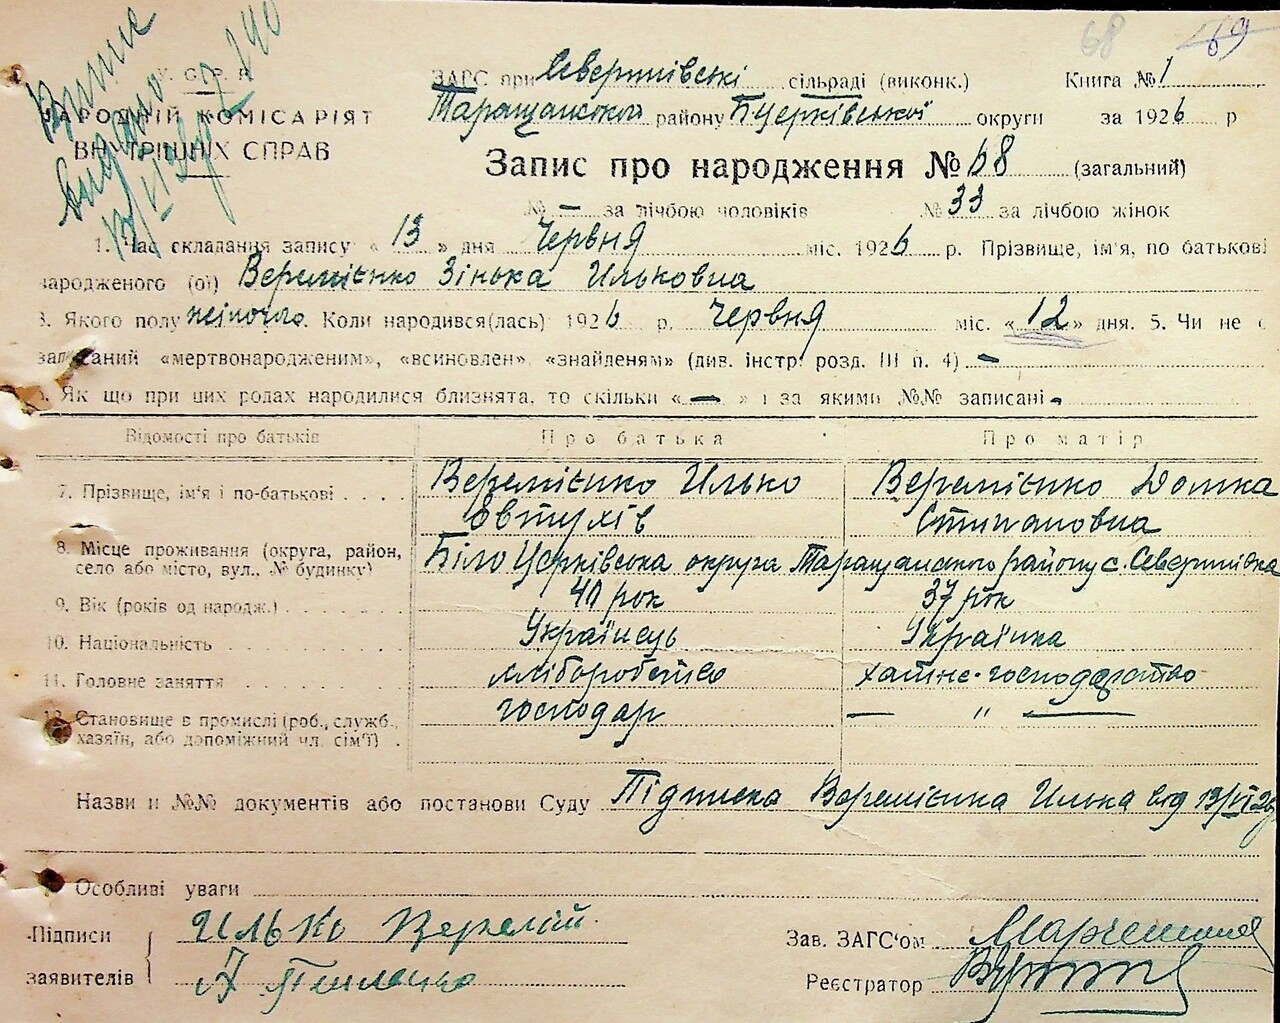 68 69
Витяг
видано
13/VI
У. С. Р. Р.
НАРОДНІЙ КОМІСАРІЯТ
ВНУТРІШНІХ СПРАВ
ЗАГС при Северинівські сільраді (виконк.) Книга № 1
Таращанского району БЦерківської округи за 1926 р
Запис про народження № 68 (загальний)
№ — за лічбою чоловіків № 33 за лічбою жінок
1. Час складання запису „ 13 " дня Червня міс. 1926 р. Прізвище, ім'я, по батькові
народженого (ої) Веремієнко Зінька Ильковна
3. Якого полу жіночого. Коли народився(лась) 1926 р. Червня міс. «12» дня. 5. Чи не є
записаний «мертвонародженим», «всиновлен», «знайденям» (див. інстр. розд. III п. 4) —
6. Як що при цих родах народилися близнята, то скільки « — » і за якими №№ записані -
Відомості про батьків Про батька Про матір
7. Прізвище, ім'я і по-батькові . . . . Веремієнко Илько Веремієнко Домка
Овтухів Стипановна
8. Місце проживання (округа, район, Біло Церківська округа Таращанского району с. Северинівка
село або місто, вул., № будинку)
9. Вік (років од народж.) 40 рок 37 рок
10. Національність Українець Українка
11. Головне заняття хліборобство хатнє-господарство
12. Становище в промислі (роб., служб., господар — " —
хазяїн, або допоміжний чл. сім'ї) .
Назви и №№ документів або постанови Суду Підписка Веремієнка Илька від 13/VI 26
Особливі уваги
Підписи Илько Веремій
заявителів А
Зав. ЗАГС'ом
Реєстратор